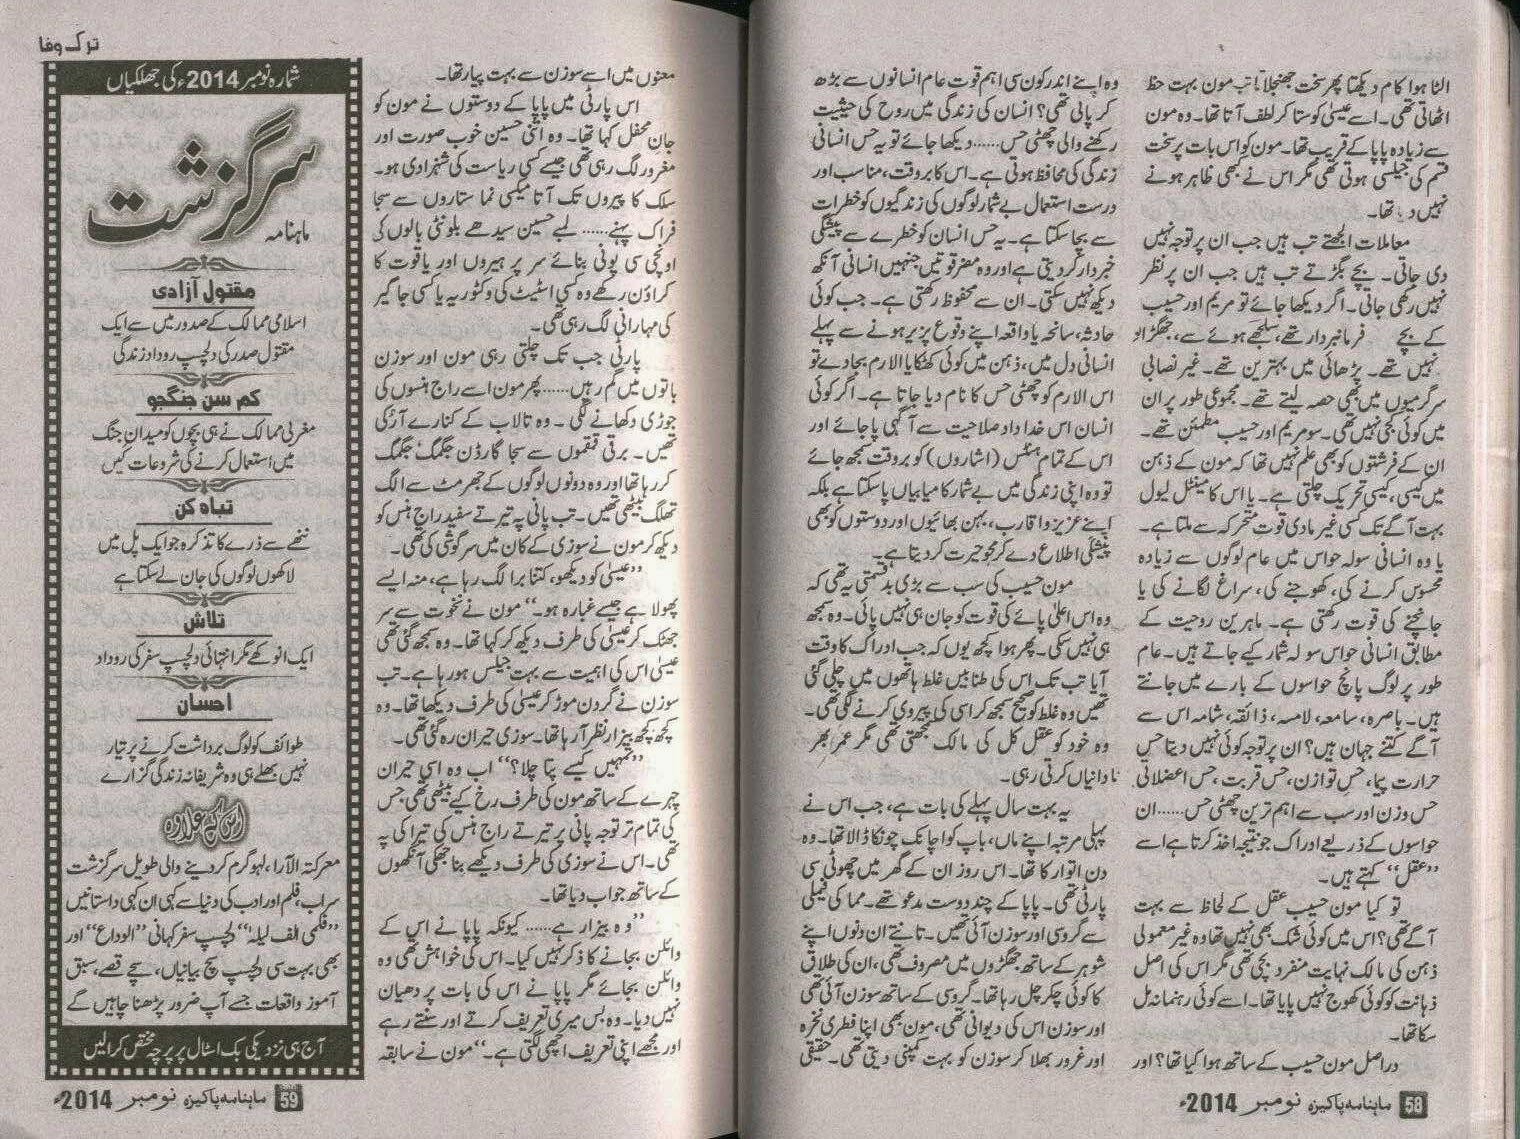 الٹا ہوا کام دیکھتا پھر سخت جھنجلاتا تب مون بہت حظ
اٹھاتی تھی۔ اسے عیسیٰ کو ستا کر لطف آتا تھا۔ وہ مون
سے زیادہ پاپا کے قریب تھا۔ مون کو اس بات پر سخت
قسم کی جیلسی ہوتی تھی مگر اس نے کبھی ظاہر ہونے
نہیں دیا تھا۔
معاملات الجھتے تب ہیں جب ان پر توجہ نہیں
دی جاتی۔ بچے بگڑتے تب ہیں جب ان پر نظر
نہیں رکھی جاتی۔ اگر دیکھا جائے تو مریم اور حسیب
کے بچے فرمانبردار تھے، سلجھے ہوئے سے، جھگڑالو
نہیں تھے۔ پڑھائی میں بہترین تھے۔ غیر نصابی
سرگرمیوں میں بھی حصہ لیتے تھے۔ مجموعی طور پر ان
میں کوئی کجی نہیں تھی۔ سو مریم اور حسیب مطمئن تھے۔
ان کے فرشتوں کو بھی علم نہیں تھا کہ مون کے ذہن
میں کیسی، کیسی تحریک چلتی ہے۔ یا اس کا مینٹل لیول
بہت آگے تک کسی غیر مادی قوت متحرکہ سے ملتا ہے۔
یا وہ انسانی سولہ حواس میں عام لوگوں سے زیادہ
محسوس کرنے کی، کھوجنے کی، سراغ لگانے کی یا
جانچنے کی قوت رکھتی ہے۔ ماہرین روحیت کے
مطابق انسانی حواس سولہ شمار کیے جاتے ہیں۔ عام
طور پر لوگ پانچ حواسوں کے بارے میں جانتے
ہیں۔ باصرہ، سامعہ، لامسہ، ذائقہ، شامہ اس سے
آگے کتنے جہان ہیں؟ ان پر توجہ کوئی نہیں دیتا حس
حرارت پیما، حس توازن، حس قربت، حس اعضلانی
حس وزن اور سب سے اہم ترین چھٹی حس...... ان
حواسوں کے ذریعے ادراک جو نتیجہ اخذ کرتا ہے اسے
”عقل“ کہتے ہیں۔
تو کیا مون حسیب عقل کے لحاظ سے بہت
آگے تھی؟ اس میں کوئی شک بھی نہیں تھا وہ غیر معمولی
ذہن کی مالک نہایت منفرد بچی تھی مگر اس کی اصل
ذہانت کو کوئی کھوج نہیں پایا تھا۔ اسے کوئی رہنما نہ مل
سکا تھا۔
دراصل مون حسیب کے ساتھ ہوا کیا تھا؟ اور
وہ اپنے اندر کون سی اہم قوت عام انسانوں سے بڑھ
کر پاتی تھی؟ انسان کی زندگی میں روح کی حیثیت
رکھنے والی چھٹی حس...... دیکھا جائے تو یہ حس انسانی
زندگی کی محافظ ہوتی ہے۔ اس کا بروقت، مناسب اور
درست استعمال بے شمار لوگوں کی زندگیوں کو خطرات
سے بچا سکتا ہے۔ یہ حس انسان کو خطرے سے پیشگی
خبردار کر دیتی ہے اور وہ مضر قوتیں جنہیں انسانی آنکھ
دیکھ نہیں سکتی۔ ان سے محفوظ رکھتی ہے۔ جب کوئی
حادثہ، سانحہ یا واقعہ اپنے وقوع پزیر ہونے سے پہلے
انسانی دل میں، ذہن میں کوئی کھٹکا یا الارم بجا دے تو
اس الارم کو چھٹی حس کا نام دیا جاتا ہے۔ اگر کوئی
انسان اس خداداد صلاحیت سے آگہی پا جائے اور
اس کے تمام ہنٹس (اشاروں) کو بروقت سمجھ جائے
تو وہ اپنی زندگی میں بے شمار کامیابیاں پا سکتا ہے بلکہ
اپنے عزیز و اقارب، بہن بھائیوں اور دوستوں کو بھی
پیشگی اطلاع دے کر محو حیرت کر دیتا ہے۔
مون حسیب کی سب سے بڑی بدقسمتی یہ تھی کہ
وہ اس اعلیٰ پائے کی قوت کو جان ہی نہیں پائی۔ وہ سمجھ
ہی نہیں سکی۔ پھر ہوا کچھ یوں کہ جب ادراک کا وقت
آیا تب تک اس کی طنابیں غلط ہاتھوں میں چلی گئی
تھیں وہ غلط کو صحیح سمجھ کر اسی کی پیروی کرنے لگی تھی۔
وہ خود کو عقل کل کی مالک سمجھتی تھی مگر عمر بھر
نادانیاں کرتی رہی۔
یہ بہت سال پہلے کی بات ہے، جب اس نے
پہلی مرتبہ اپنے ماں، باپ کو اچانک چونکا ڈالا تھا۔ وہ
دن اتوار کا تھا۔ اس روز ان کے گھر میں چھوٹی سی
پارٹی تھی۔ پاپا کے چند دوست مدعو تھے۔ مما کی فیملی
سے گروسی اور سوزن آئی تھیں۔ تانتے ان دنوں اپنے
شوہر کے ساتھ جھگڑوں میں مصروف تھی، ان کی طلاق
کا کوئی چکر چل رہا تھا۔ گروسی کے ساتھ سوزن آئی تھی
اور سوزن اس کی دیوانی تھی، مون بھی اپنا فطری نخرہ
اور غرور بھلا کر سوزن کو بہت کمپنی دیتی تھی۔ حقیقی
58 ماہنامہ پاکیزہ نومبر 2014ء
ترک وفا
معنوں میں اسے سوزن سے بہت پیار تھا۔
اس پارٹی میں پاپا کے دوستوں نے مون کو
جان محفل کہا تھا۔ وہ اتنی حسین خوب صورت اور
مغرور لگ رہی تھی جیسے کسی ریاست کی شہزادی ہو۔
سلک کا پیروں تک آتا میکسی نما ستاروں سے سجا
فراک پہنے...... لمبے حسین سیدھے بلونٹی بالوں کی
اونچی سی پونی بنائے سر پر ہیروں اور یاقوت کا
کراؤن رکھے وہ کسی اسٹیٹ کی وکٹوریہ یا کسی جاگیر
کی مہارانی لگ رہی تھی۔
پارٹی جب تک چلتی رہی مون اور سوزن
باتوں میں گم رہیں...... پھر مون اسے راج ہنسوں کی
جوڑی دکھانے لگی۔ وہ تالاب کے کنارے آ رکی
تھیں۔ برقی قمقموں سے سجا گارڈن جگمگ جگمگ
کر رہا تھا اور وہ دونوں لوگوں کے جھرمٹ سے الگ
تھلگ بیٹھی تھیں۔ تب پانی پہ تیرتے سفید راج ہنس کو
دیکھ کر مون نے سوزی کے کان میں سرگوشی کی تھی۔
”عیسیٰ کو دیکھو، کتنا برا لگ رہا ہے، منہ ایسے
پھولا ہے جیسے غبارہ ہو۔“ مون نے نخوت سے سر
جھٹک کر عیسیٰ کی طرف دیکھ کر کہا تھا۔ وہ سمجھ گئی تھی
عیسیٰ اس کی اہمیت سے بہت جیلس ہو رہا ہے۔ تب
سوزن نے گردن موڑ کر عیسیٰ کی طرف دیکھا تھا۔ وہ
کچھ کچھ بیزار نظر آ رہا تھا۔ سوزی حیران رہ گئی تھی۔
”تمہیں کیسے پتا چلا؟“ اب وہ اسی حیران
چہرے کے ساتھ مون کی طرف رخ کیے بیٹھی تھی جس
کی تمام تر توجہ پانی پر تیرتے راج ہنس کی تیراکی پہ
تھی۔ اس نے سوزی کی طرف دیکھے بنا جھکی آنکھوں
کے ساتھ جواب دیا تھا۔
”وہ بیزار ہے...... کیونکہ پاپا نے اس کے
وائلن بجانے کا ذکر نہیں کیا۔ اس کی خواہش تھی وہ
وائلن بجائے مگر پاپا نے اس کی بات پر دھیان
نہیں دیا۔ وہ بس میری تعریف کرتے اور سنتے رہے
اور مجھے اپنی تعریف اچھی لگتی ہے۔“ مون نے سابقہ
شمارہ نومبر 2014ء کی جھلکیاں
ماہنامہ سرگزشت
مقتول آزادی
اسلامی ممالک کے صدور میں سے ایک
مقتول صدر کی دلچسپ رودادِ زندگی
کم سن جنگجو
مغربی ممالک نے ہی بچوں کو میدان جنگ
میں استعمال کرنے کی شروعات کیں
تباہ کن
ننھے سے ذرے کا تذکرہ جو ایک پل میں
لاکھوں لوگوں کی جان لے سکتا ہے
تلاش
ایک انوکھے مگر انتہائی دلچسپ سفر کی روداد
احسان
طوائف کو لوگ برداشت کرنے پر تیار
نہیں بھلے ہی وہ شریفانہ زندگی گزارے
اس کے علاوہ
معرکۃ الآرا، لہو گرم کر دینے والی طویل سرگزشت
سراب، فلم اور ادب کی دنیا سے کہی ان کہی داستانیں
”فلمی الف لیلہ“ دلچسپ سفر کہانی ”الوداع“ اور
بھی بہت سی دلچسپ سچ بیانیاں، سچے قصے، سبق
آموز واقعات جسے آپ ضرور پڑھنا چاہیں گے
آج ہی نزدیکی بک اسٹال پر پرچہ مختص کرالیں
59 ماہنامہ پاکیزہ نومبر 2014ء